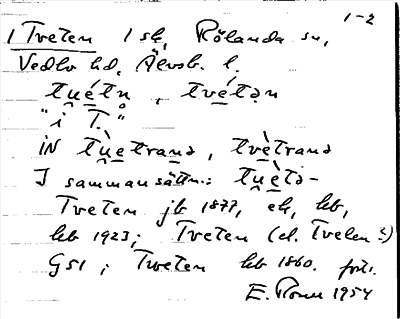 1-2
1 Tveten 1 sk, Rölanda sn,
Vedbo hd, Älvsb. l.
tu̯étn , tvétən
"i T."
iN tu̯ètrana , tvètrana
I sammansättn.: tu̯ètə-
Tveten jb 1877, ek, kb,
kb 1923; Tveten (el. Tvelen?)
GS1 ; Tweten kb 1860. forts.
1954